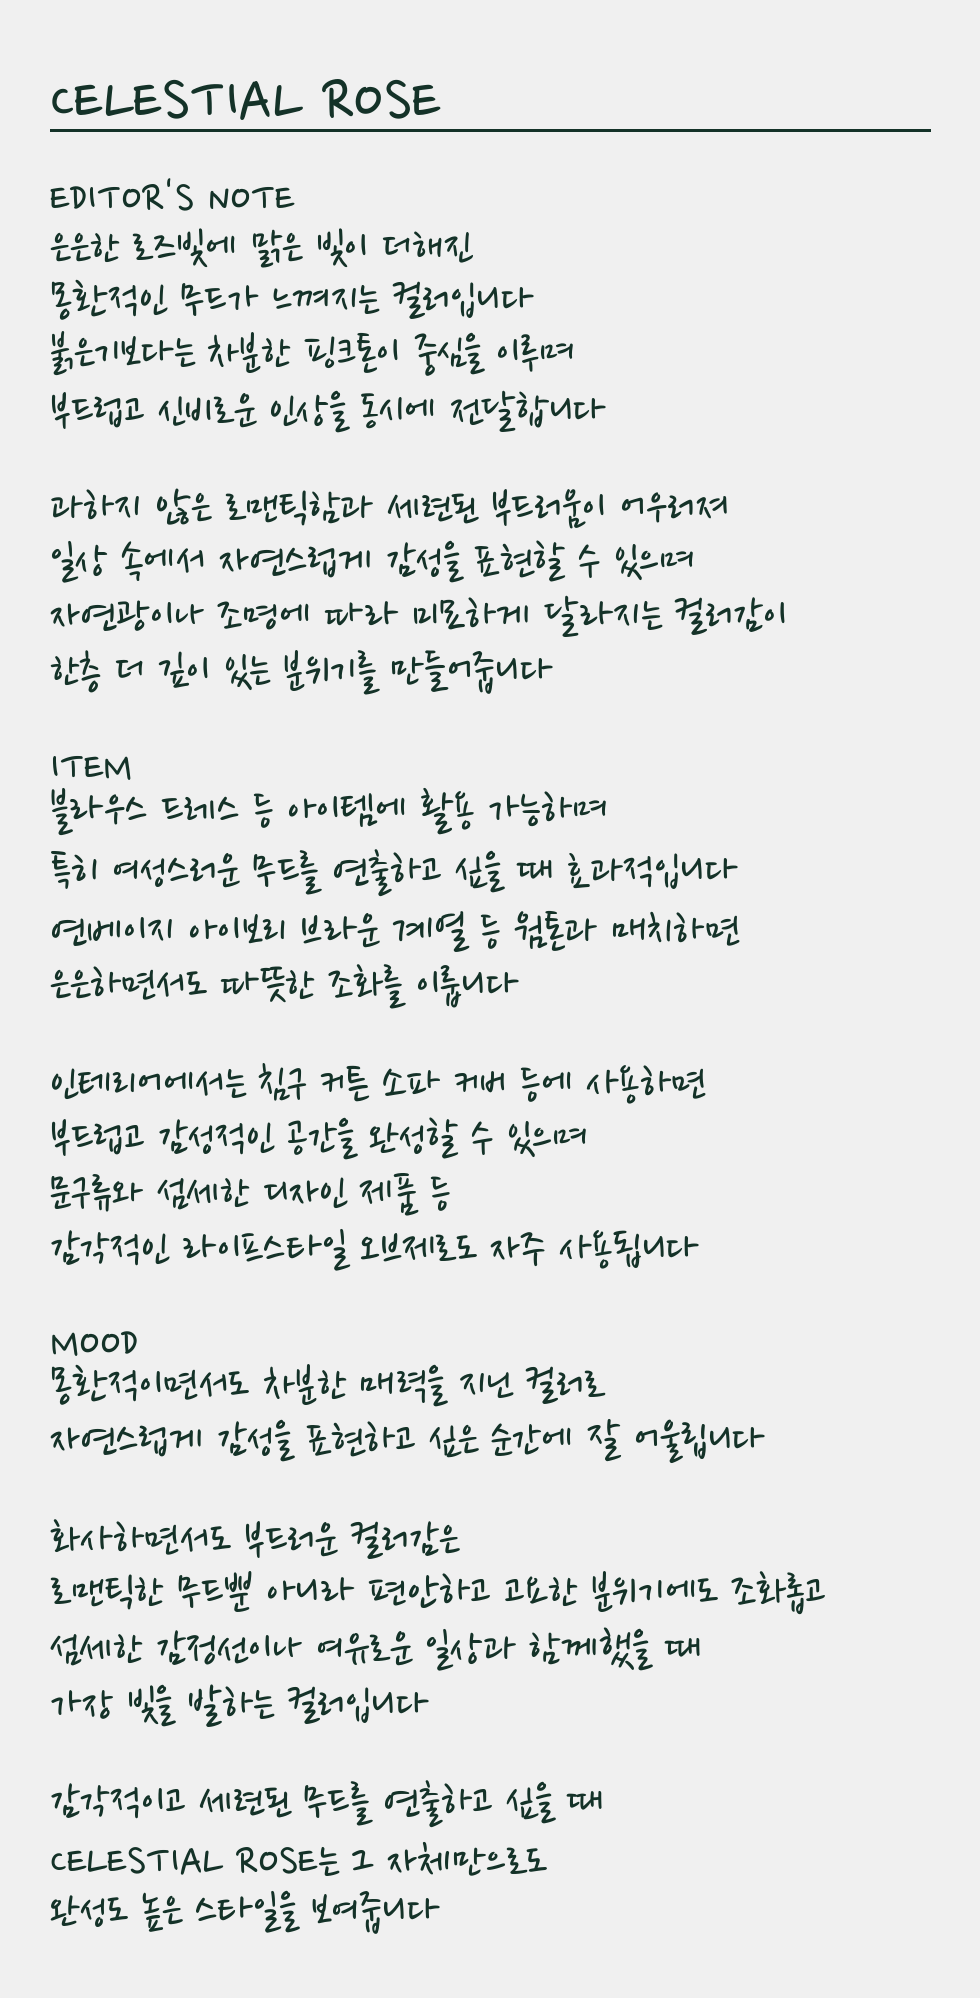 CELESTIAL ROSE
EDITOR'S NOTE
은은한 로즈빛에 맑은 빛이 더해진
몽환적인 무드가 느껴지는 컬러입니다
붉은기보다는 차분한 핑크톤이 중심을 이루며
부드럽고 신비로운 인상을 동시에 전달합니다
과하지 않은 로맨틱함과 세련된 부드러움이 어우러져
일상 속에서 자연스럽게 감성을 표현할 수 있으며
자연광이나 조명에 따라 미묘하게 달라지는 컬러감이
한층 더 깊이 있는 분위기를 만들어줍니다
ITEM
블라우스 드레스 등 아이템에 활용 가능하며
특히 여성스러운 무드를 연출하고 싶을 때 효과적입니다
연베이지 아이보리 브라운 계열 등 웜톤과 매치하면
은은하면서도 따뜻한 조화를 이룹니다
인테리어에서는 침구 커튼 소파 커버 등에 사용하면
부드럽고 감성적인 공간을 완성할 수 있으며
문구류와 섬세한 디자인 제품 등
감각적인 라이프스타일 오브제로도 자주 사용됩니다
MOOD
몽환적이면서도 차분한 매력을 지닌 컬러로
자연스럽게 감성을 표현하고 싶은 순간에 잘 어울립니다
화사하면서도 부드러운 컬러감은
로맨틱한 무드뿐 아니라 편안하고 고요한 분위기에도 조화롭고
섬세한 감정선이나 여유로운 일상과 함께했을 때
가장 빛을 발하는 컬러입니다
감각적이고 세련된 무드를 연출하고 싶을 때
CELESTIAL ROSE는 그 자체만으로도
완성도 높은 스타일을 보여줍니다